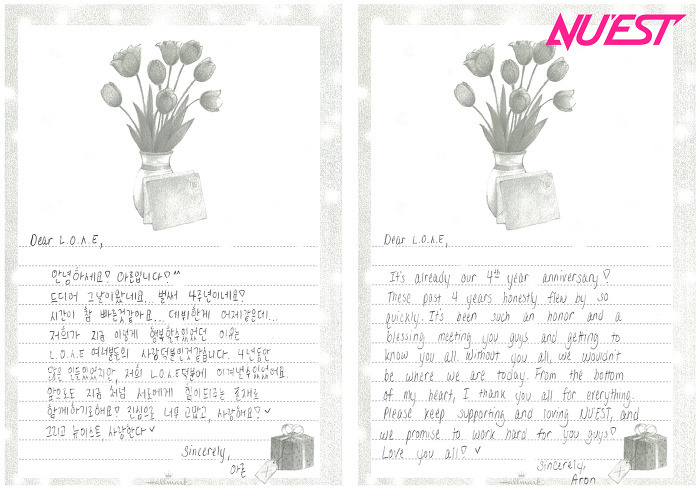 Dear L.O.Λ.E,
안녕하세요♡ 아론입니다♡^^
드디어 그날이왔네요... 벌써 4주년이네요♡
시간이 참 빠른것같아요... 데뷔한게 어제같은데...
저희가 지금 이렇게 행복할수있었던 이유는
L.O.Λ.E 여러분들의 사랑덕분인것같습니다. 4년동안
많은 일들있었지만, 저희 L.O.Λ.E덕분에 이겨낼수있었어요.
앞으로도 지금 처럼 서로에게 힘이되는 존재로
함께하기로해요♡ 진심으로 너무 고맙고, 사랑해요♡✓
그리고 뉴이스트, 사랑한다✓
Sincerely,
아론
Hallmark
NU'EST
Dear L.O.Λ.E,
It's already our 4th year anniversary♡
These past 4 years honestly flew by so
quickly. It's been such an honor and a
blessing meeting you guys and getting to
know you all. Without you all, we wouldn't
be where we are today. From the bottom
of my heart, I thank you all for everything.
Please keep supporting and loving NU'EST, and
we promise to work hard for you guys♡
Love you all♡ ✓
Sincerely,
Aron
Hallmark